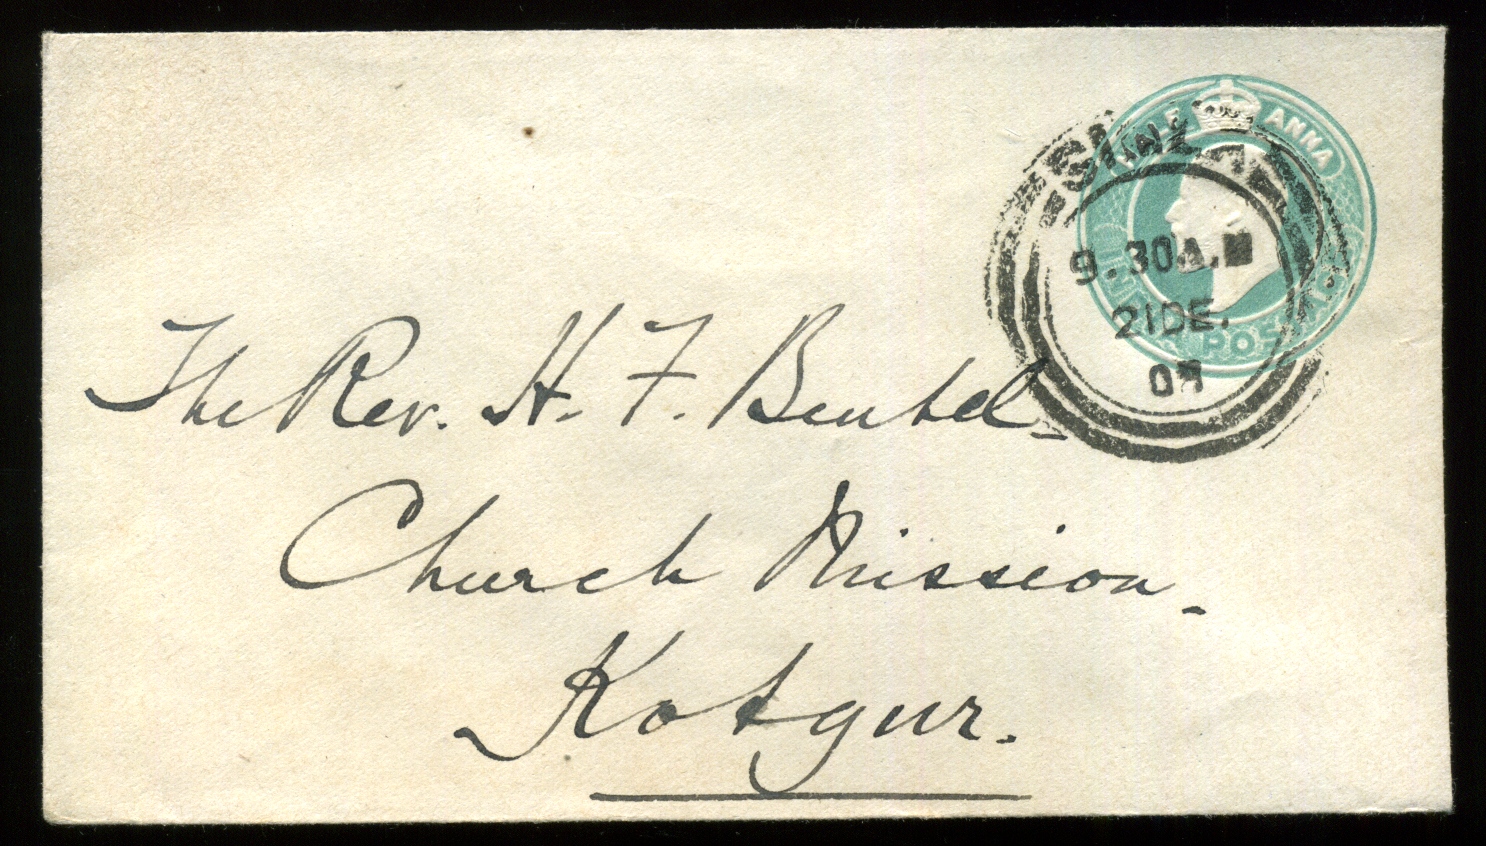 ANNA
9.30A.M
21DE.
POS
The Rev. H. F. Beutel.
Church Mission.
Kotgur.